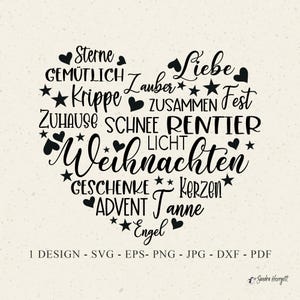 Sterne
Liebe
GEMÜTLICH
Zauber
Krippe
ZUSAMMEN
Fest
ZUHAUSE
SCHNEE
RENTIER
LICHT
Weihnachten
GESCHENKE
Kerzen
ADVENT
Tanne
Engel
1 DESIGN - SVG - EPS- PNG - JPG - DXF - PDF